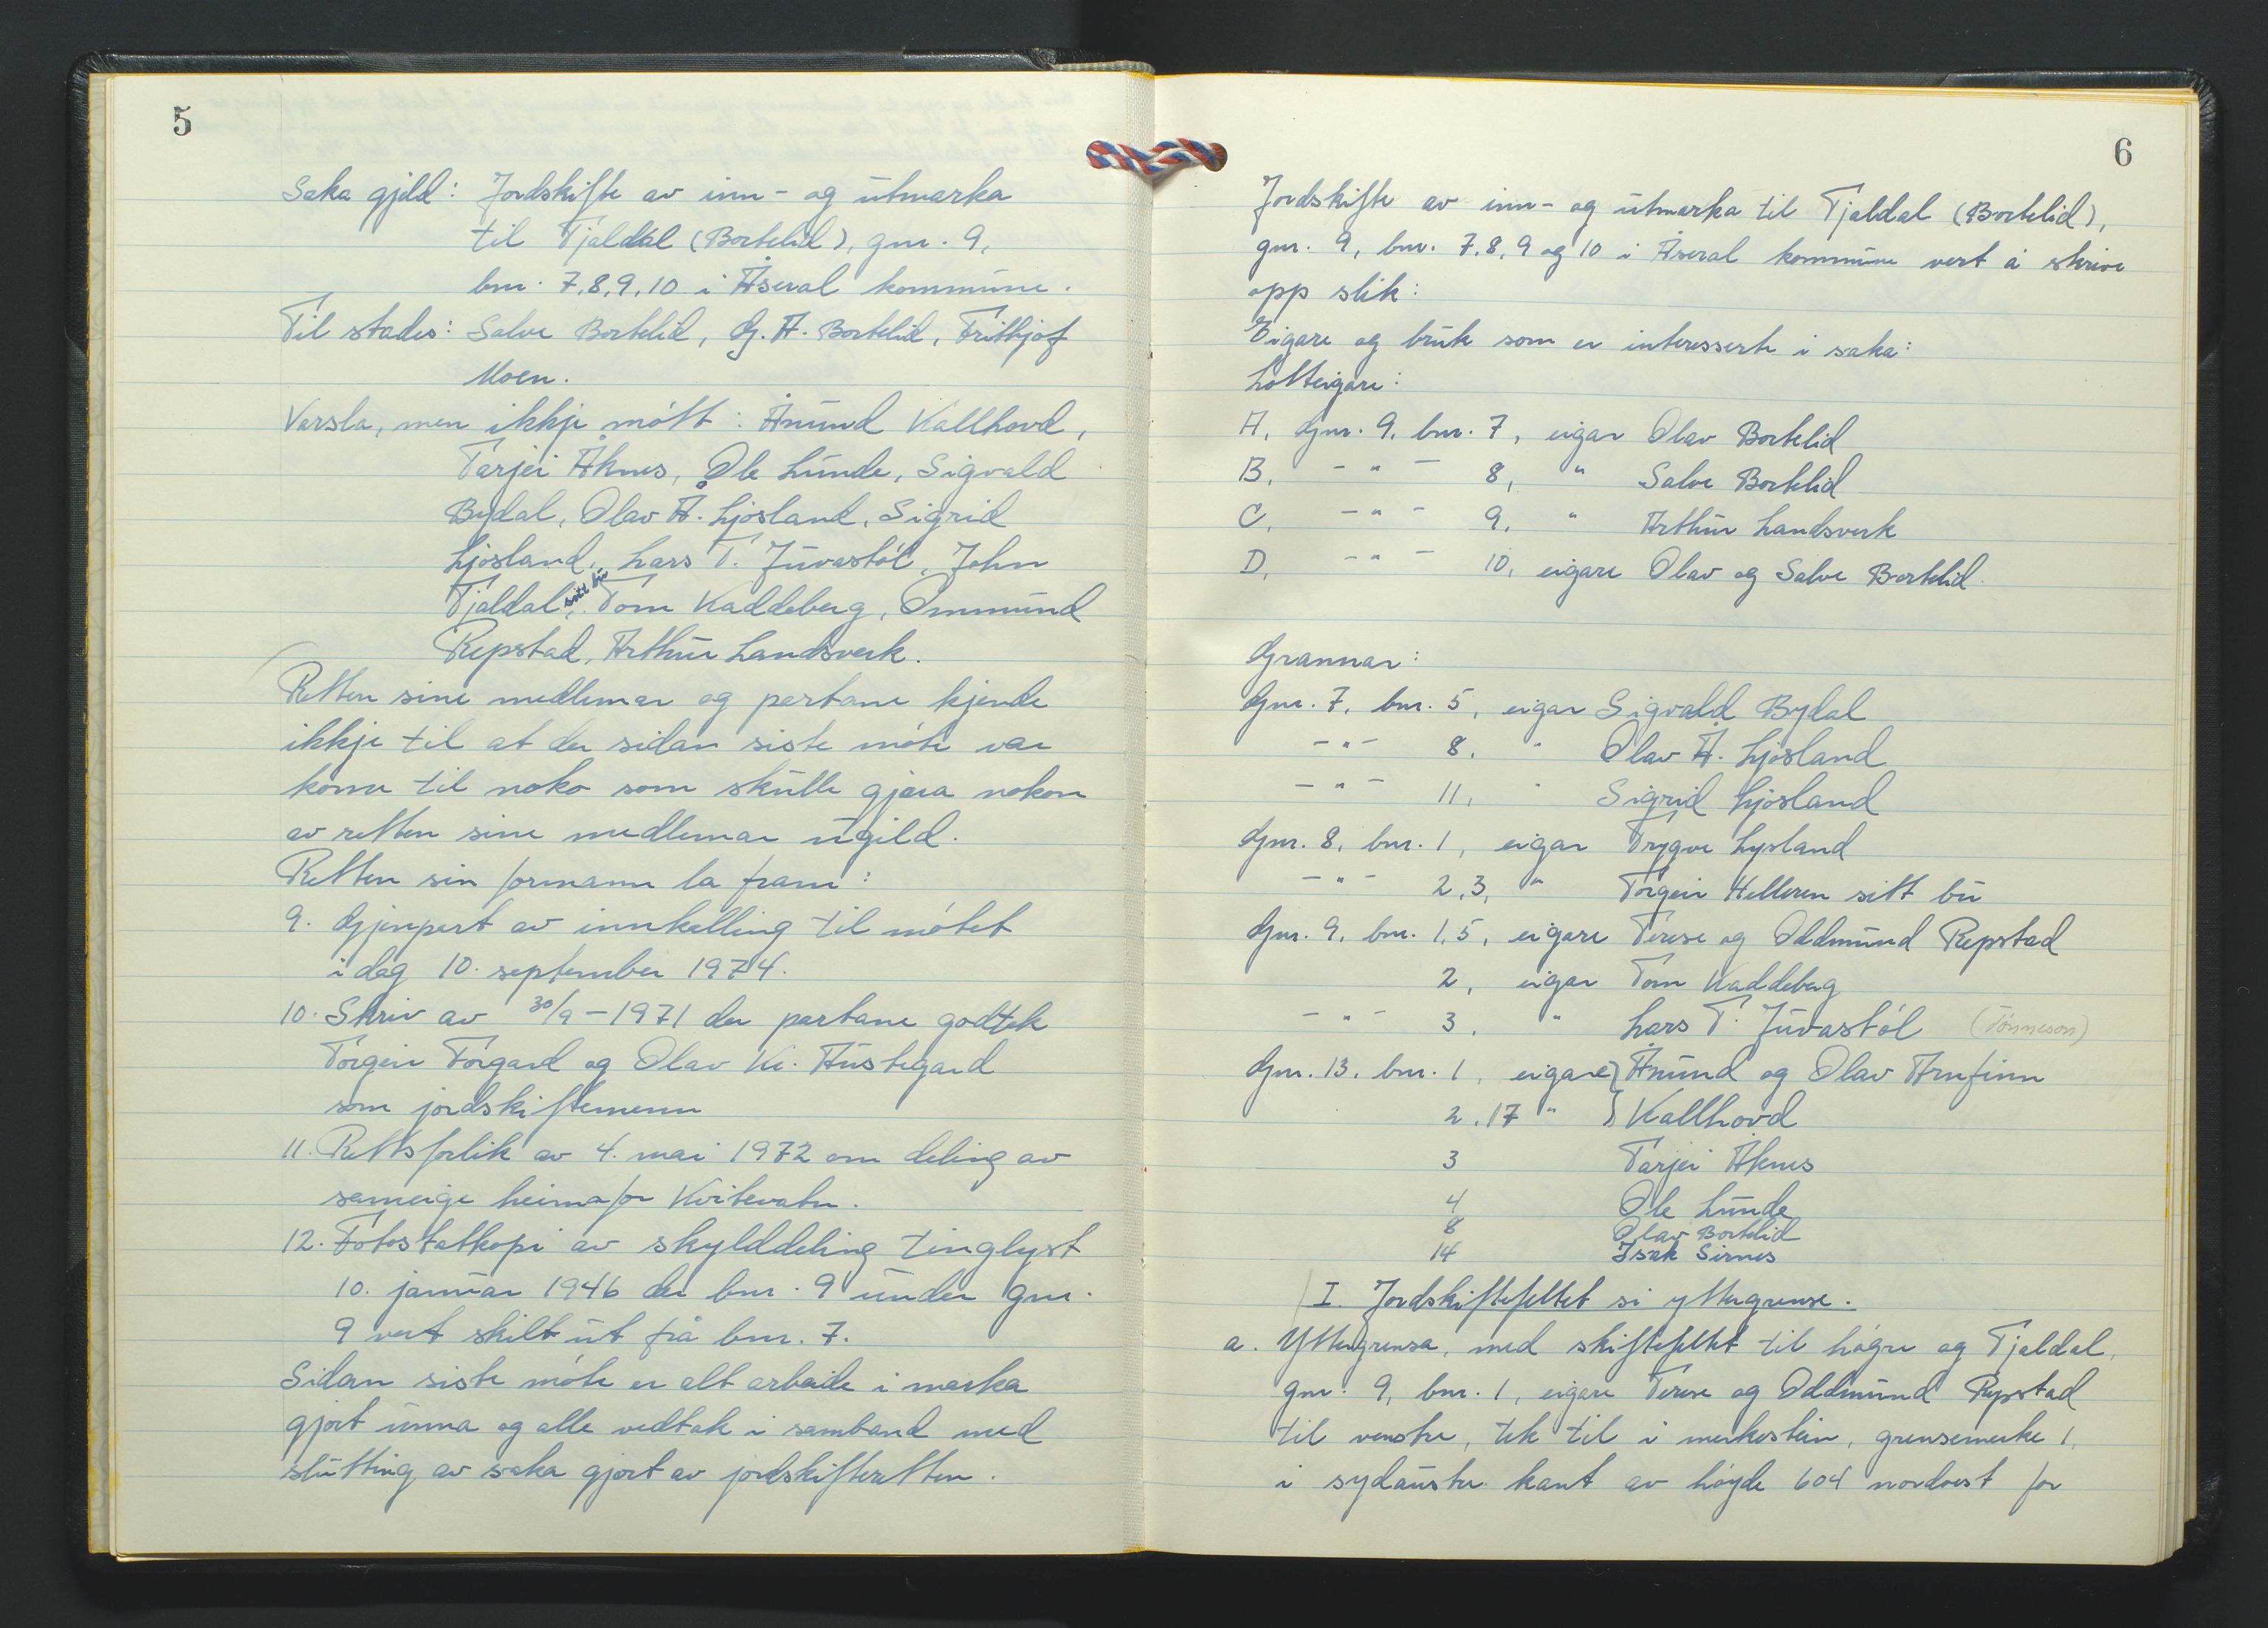 5
Saka gjeld: Jordskifte av inn- og utmarka
til Tjaldal (Bortelid), gnr. 9,
bnr. 7,8,9,10 i Åseral kommune.
Til stades: Salve Bortelid, G. A. Bortelid, Frithjof
Moen.
Varsla, men ikkje møtt: Ånund Kallhovd,
Tarjei Åknes, Ole Lunde, Sigvald
Bydal, Olav Å. Ljosland, Sigrid
Ljosland, Lars T. Juvastøl, John
Tjaldal sitt bu, Tom Kaddeberg, Ommund
Repstad, Arthur Landsverk.
Retten sine medlemar og partane kjende
ikkje til at der sidan siste møte var
kome til noko som skulle gjera nokon
av retten sine medlemar ugild.
Retten sin formann la fram:
9. Gjenpart av innkalling til møtet
i dag 10. september 1974.
10. Skriv av 30/9-1971 der partane godtek
Torgeir Forgard og Olav Kr. Austegard
som jordskiftemenn
11. Rettsforlik av 4. mai 1972 om deling av
sameige heimafor Kvitevatn.
12. Fotostatkopi av skylddeling tinglyst
10. januar 1946 der bnr. 9 under gnr.
9 vert skilt ut frå bnr. 7.
Sidan siste møte er alt arbeide i marka
gjort unna og alle vedtak i samband med
slutting av saka gjort av jordskifteretten.
6
Jordskifte av inn- og utmarka til Tjaldal (Bortelid),
gnr. 9, bnr. 7,8,9 og 10 i Åseral kommune vert å skrive
opp slik:
Eigare og bruk som er interesserte i saka:
Lotteigare:
A, Gnr. 9, bnr. 7, eigar Olav Bortelid
B, - " - 8, " Salve Bortelid
C, - " - 9, " Arthur Landsverk
D, - " - 10, eigare Olav og Salve Bortelid.
Grannar:
Gnr. 7, bnr. 5, eigar Sigvald Bydal
- " - 8, " Olav Å. Ljosland
- " - 11, " Sigrid Ljosland
Gnr. 8, bnr. 1, eigar Trygve Lysland
- " - 2,3, " Torgeir Helleren sitt bu
Gnr. 9, bnr. 1,5, eigare Terese og Oddmund Repstad
2, eigar Tom Kaddeberg
- " - 3, " Lars T. Juvastøl (Tønneson)
Gnr. 13, bnr. 1, eigare} Ånund og Olav Arnfinn
2,17 " } Kallhovd
3 Tarjei Åknes
4 Ole Lunde
8 Olav Bortelid
14 Isak Sirnes
I. Jordskiftefeltet si yttergrense.
a. Yttergrensa, med skiftefeltet til høgre og Tjaldal,
gnr. 9, bnr. 1, eigare Terese og Oddmund Repstad
til venstre, tek til i merkestein, grensemerke 1,
i sydaustre kant av høyde 604 nordvest for